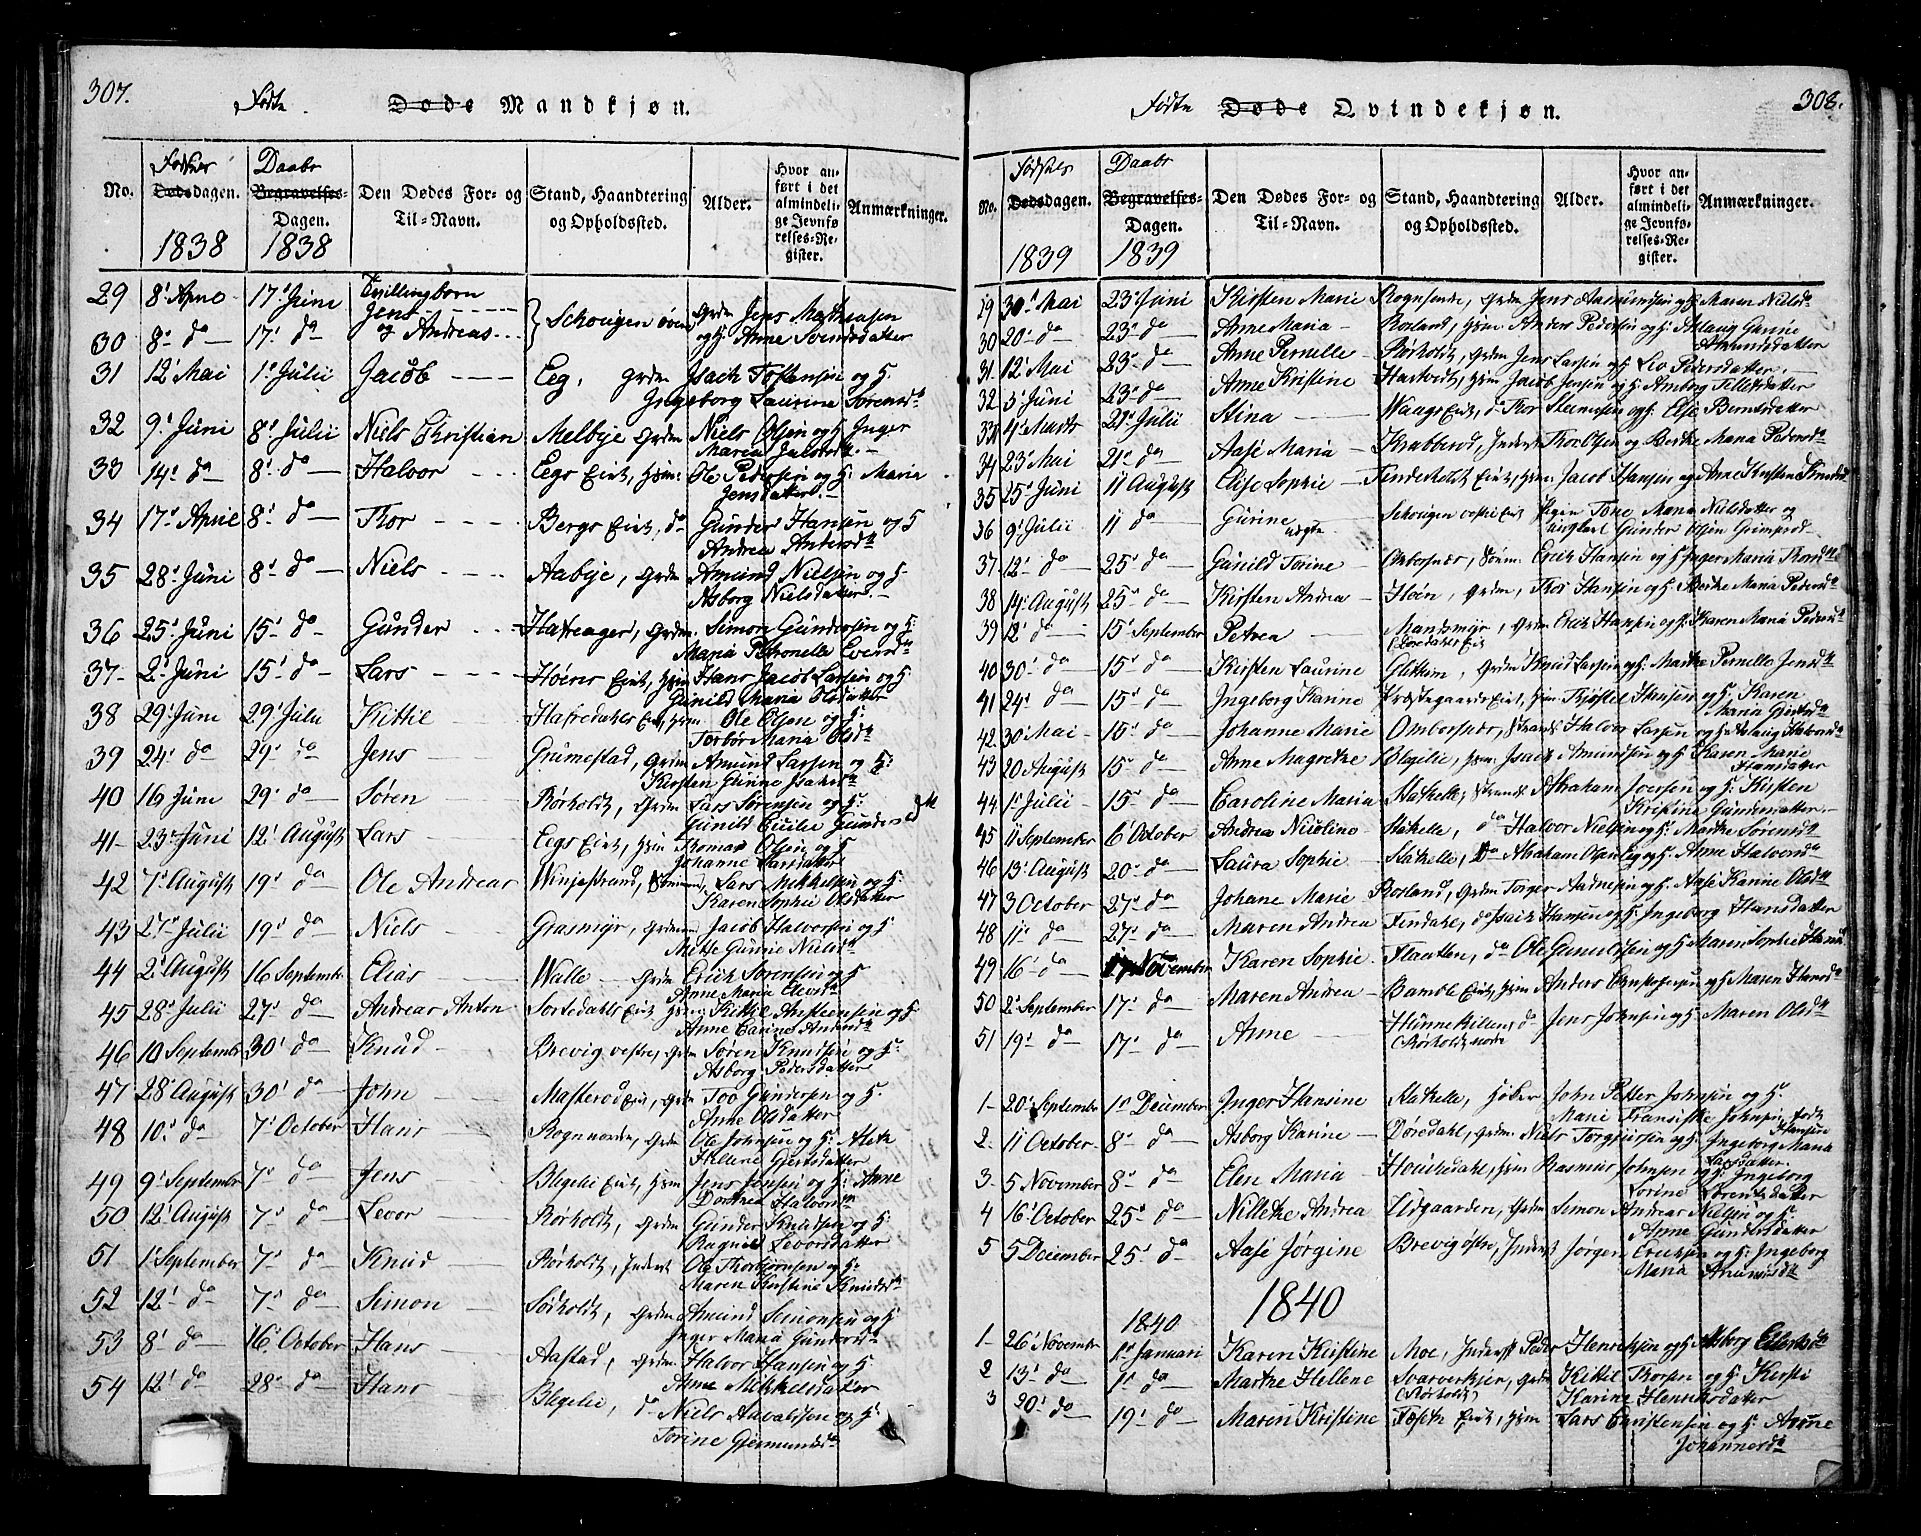 307.
Fødte. Døde Mandkjøn.
No.
Fødsels Dødsdagen. 1838
Daabs Begravelses-Dagen. 1838
Den Dødes For- og Til-Navn.
Stand, Haandtering og Opholdssted.
Alder.
Hvor anført i det almindelige Jevnførelses-Register.
Anmærkninger.
29 8' April 17' Junii Tvillingbørn Jens Schougen øvre Grdm Jens Mathiasen
30 8' do 17' do og Andreas og H. Anne Svendsdatter
31 12' Mai 1' Julii Jacob Eeg, Grdm Isach Tostensen og H.
Ingeborg Laurina Sørensd.
32 9' Juni 8' Julii Niels Christian Melbye Grdm Niels Olsen og H. Inger
Maria
33 14' do 8' do Halvor Eegs Eiet, Hsm: Ole Pedersen og H. Maria
Jensdatter.
34 17' April 8' do Thor Bergs Eiet, do Gunder Hansen og H
Andrea Andersd.
35 28' Juni 8' do Niels Aabye, Grdm Amund Nielsen og H
Asborg Nielsdatter.
36 25' Juni 15' do Gunder Hafsager, Grdm. Simon Gundersen og H.
Maria Petronella Evensd.
37 2' Juni 15' do Lars Høens Eiet, Hsm Hans Jacob Larsen og H.
Gunild Maria Olsdatter
38 29' Juni 29' Julii Kittil Hafredahls Eiet, Hsm Ole Olsen og H.
Torbør Maria Olsd.
39 24' do 29' do Jens Grumestad, Grdm Amund Larsen og H.
Kirsten Gurine Isaksd.
40 16 Juni 29' do Søren Rørholdt, Grdm Lars Sørensen og H.
Gunild Cicilie Gundersd.
41 23' Juni 12' August Lars Eegs Eiet, Hsm Thomas Olsen og H
Johanne Larsdatter
42 7' August 19' do Ole Andreas Winjestrand, Lars Mikkelsen og H.
Karen Sophie Olsdatter
43 27' Julii 19' do Niels Grasmyr, Grdm Jacob Halvorsen og H
Mette Gurine Nielsd.
44 2' August 16 September Elias Walle Grdm Erich Sørensen og H
Anne Maria Eliesd.
45 28' Julii 27' do Andreas Anton Sortedahls Eiet, Hsm Kittil Christensen og H.
Anne Carine Andersd.
46 10 Septembr 30' do Knud Brevig vestre, Grdm Søren Knudsen og H:
Asborg Pedersdatter
47 28' August 30' do John Masterød Eiet, Grdm Too Gundersen og H.
Anne Olsdatter
48 10' do 7' October Hans Rogn nordre, Grdm Ole Johnsen og H. Aleth
Hellene Giertsdatter
49 9' Septembr 7' do Jens Blegelie Eiet, Hsm Jens Jonsen og H: Anne
Dorthea Halvorsd.
50 12' August 7' do Levor Rørholdt, Grdm Gunder Knudsen og H.
Ragnild Levorsdatter
51 1' September 7' do Knud Rørholdt, Inderst Ole Thorbjørnsen og H:
Maren Kirstine Knudsd.
52 12' do 7' do Simon Sødholdt, Grdm Amund Simonsen og H
Inger Maria Gundersd.
53 8' do 16' October Hans Aastad, Grdm Halvor Hansen og H.
Anne Mikkelsdatter
54 12' do 28' do Hans Blegelie, do Niels Aavaldsen og H:
Torine Giermundsd.
308.
Fødte Døde Qvindekjøn.
No.
Fødsels Dødsdagen. 1839
Daabs Begravelses-Dagen. 1839
Den Dødes For- og Til-Navn.
Stand, Haandtering og Opholdssted.
Alder.
Hvor anført i det almindelige Jevnførelses-Register.
Anmærkninger.
29 30' Mai 23' Juni Kirsten Marie Rognsøndre, Grdm Jens Aamundsen og H. Maren Nielsd.
30 20' do 23' do Anne Maria Rosland, Hsm Anders Pedersen og H. Aslaug Gurine
Amundsdatter
31 12' Mai 23' do Anne Pernelle Rørholdt, Grdm Jens Larsen og H. Liv Pedersdatter.
32 3' Juni 23' do Anne Kristine Hastvedt, Hsm Jacob Jensen og H. Amborg Tellefsdatter
33 4' Marts 21' Julii Stina Waags Eiet, do Thor Steenersen og H: Else Berntsdatter
34 23' Mai 21' do Aase Maria Krabberød, Inderst Thor Olsen og Berthe Maria Pedersd.
35 25' Juni 11 August Elise Sophie Findeholdt Eiet, Hsm: Jacob Hansen og Anne Kirsten
36 9' Julii 11 do Gurine uægte Schougen vestre Eiet Pigen Tone Maria Nielsdatter og
ungkarl Gunder Olsen
37 12' do 25' do Gunild Torine Erich Hansen og H Inger Maria
38 14' August 25' do Kirsten Andrea Høen, Grdm, Thor Hansen og H. Berthe Maria Pedersd.
39 12' do 15' September Petrea Mandsmyr, Grdm Erich Hansen og H. Karen Maria Pedersd.
40 30' do 15' do Kirsten Laurine Glittum, Grdm Knud Larsen og H. Marthe Pernelle Jensd.
41 24' do 15' do Ingeborg Karine Præstegaards Eiet, Hsm Thjøstel Hansen og H. Karen
Maria
42 30 Mai 15' do Johanne Marie Ombersnæs, Strands. Halvor Larsen og H Aslaug Halvorsd.
43 20 August 15' do Anne Magrethe Blegelie, Hsm, Isach Amundsen og H Karen Marie
Hansdatter
44 1' Julii 15' do Caroline Maria Stathelle, Strands. Abraham Joersen og H. Kirsten
Kristine Gundersdatter.
45 11 September 6' October Andrea Nicoline Stathelle, do Halvor Nielsen og H. Marthe Sørensd.
46 13' August 20' do Laura Sophie Stathelle, do Abraham Olsen og H. Anne Halvorsd.
47 3 October 27' do Johane Marie Rosland, Grdm Torger Aadnesen og H. Aase Karine Olsd.
48 11' do 27' do Maren Andrea Findahl, do Isach Hansen og H. Ingeborg Hansdatter
49 16' do November Karen Sophie Flaatten, do Ole Gunuldsen og H Maren Sophie
50 2' September 17' do Maren Andrea Bamble Eiet, Hsm Anders Christophersen og H Maren Hansd.
51 19' do 17' do Anne Hunnekillen, do Jens Johnsen og H: Maren Olsd.
(Rørholdt nordre
1 20' Septembr 1' December Inger Hansine Stathelle, John Petter Johnsen og H.
Marie Fransiske Johnsen født Hansen
2. 11' October 8' do Asborg Karine Døredahl, Grdm Niels Torgjursen og H. Ingeborg Maria
Larsdatter.
3. 5 November 8' do Elen Maria Hsm Rasmus Johnsen og H. Ingeborg
Lorine Lorentsdatter
4 16' October 25' do Nilleke Andrea Udgaarden, Grdm Simon Andreas Nielsen og H:
Anne Gundersdatter
5 5 December 25' do Aase Jørgine Brevig østre, Inderst Jørgen Erichsen og H: Ingeborg
Maria Amundsd.
1840
1840
1 26' Novembr 1' Januari Karen Kristine Moe, Inderst Peder Henrichsen og H. Asborg Ellefsd.
2 13' do 1' do Marthe Hellene Svarverkjen, Grdm Kittil Thorsen og H. Kersti
(Rørholdt) Karine Henriksdatter
3 20' do 19' do Maren Kristine Eiet, Hsm Lars Christensen og H: Anne
Johannesd.